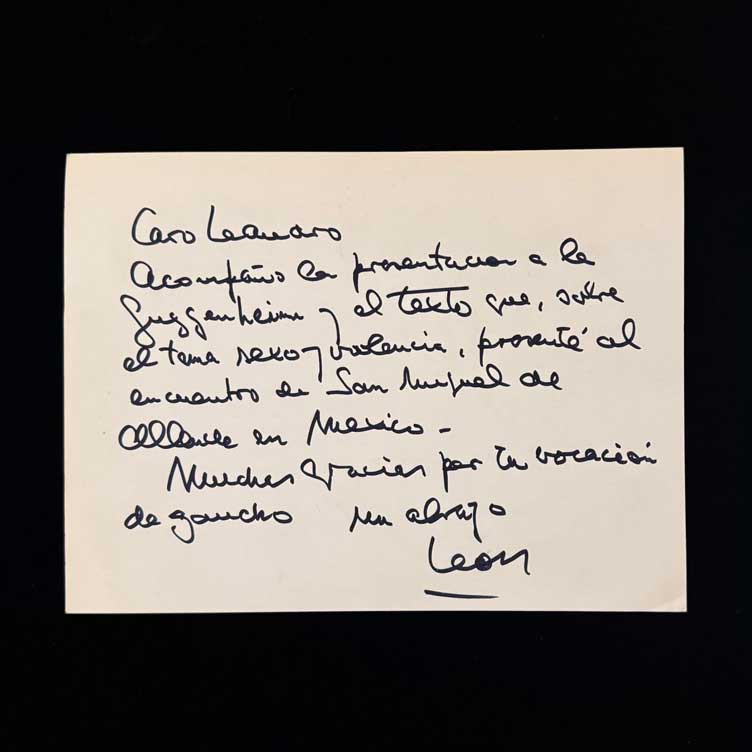 Caro Leandro
Acompaño la presentacion a la
Guggenheim y el texto que, sobre
el tema sexo y violencia, presenté al
encuentro de San Miguel de
Allende en Mexico -
Muchas gracias por tu vocación
de gaucho un abrazo
León